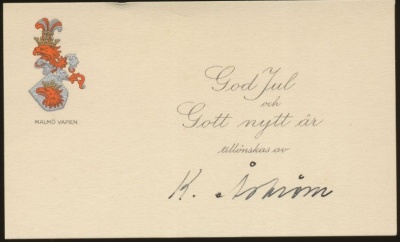 MALMÖ VAPEN
God Jul
och
Gott nytt år
tillönskas av
K. Åström